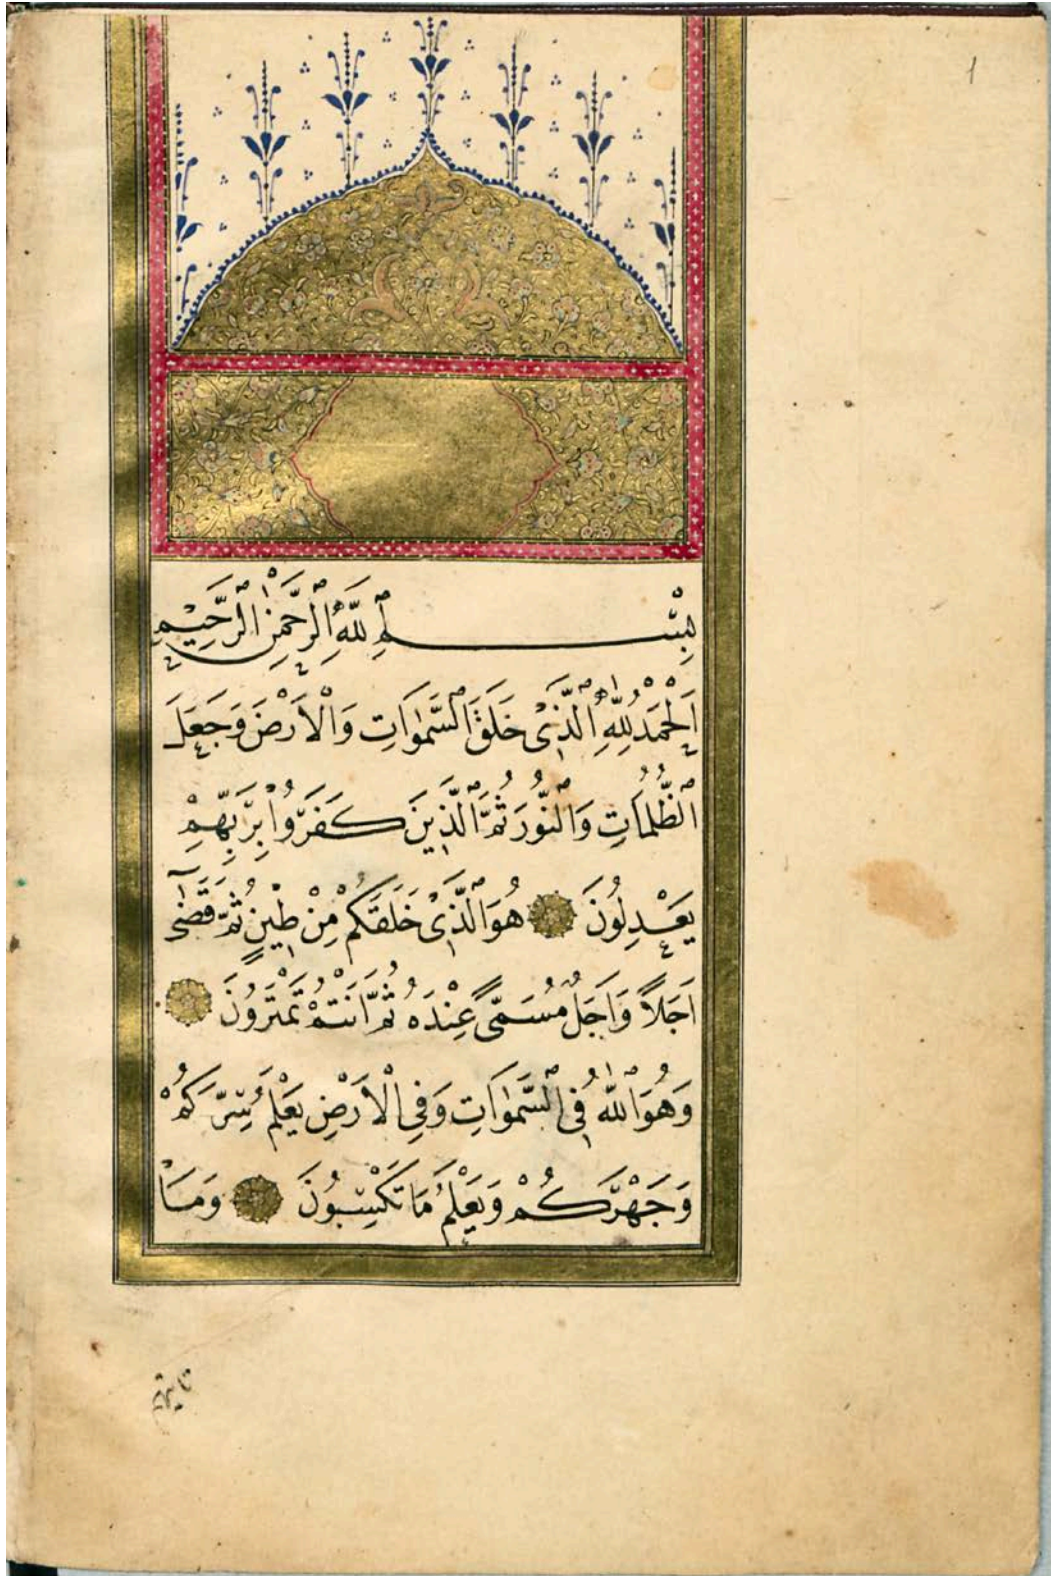 1
بِسْمِ اللّٰهِ الرَّحْمٰنِ الرَّحِيْمِ
اَلْحَمْدُ لِلّٰهِ الَّذِىْ خَلَقَ السَّمٰوَاتِ وَالْاَرْضَ وَجَعَلَ
الظُّلُمَاتِ وَالنُّوْرَ ثُمَّ الَّذِيْنَ كَفَرُوْا بِرَبِّهِمْ
يَعْدِلُوْنَ هُوَ الَّذِىْ خَلَقَكُمْ مِنْ طِيْنٍ ثُمَّ قَضٰٓى
اَجَلًا وَاَجَلٌ مُسَمًّى عِنْدَهُ ثُمَّ اَنْتُمْ تَمْتَرُوْنَ
وَهُوَ اللّٰهُ فِى السَّمٰوَاتِ وَفِى الْاَرْضِ يَعْلَمُ سِرَّكُمْ
وَجَهْرَكُمْ وَيَعْلَمُ مَا تَكْسِبُوْنَ وَمَا
تاتيهم